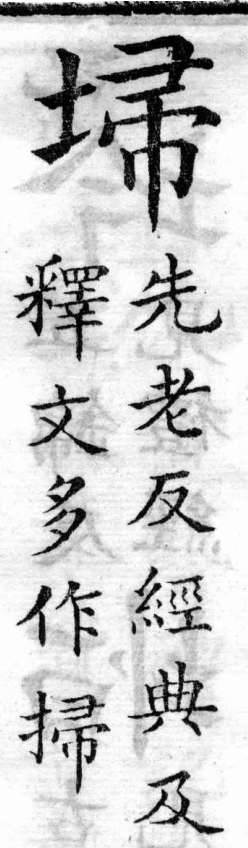 埽
先老反經典及
釋文多作掃